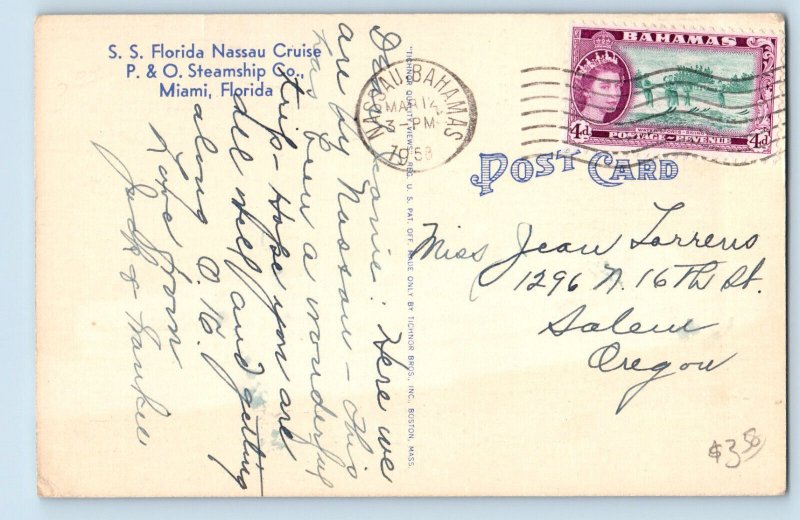 S. S. Florida Nassau Cruise
P. & O. Steamship Co.,
Miami, Florida
Dear Jeanie: Here we
are by Nassau - this
has been a wonderful
trip - Hope you are
all well and getting
along O.K.
Love from
Jack & Frankie
"TICHNOR QUALITY VIEWS," REG. U. S. PAT. OFF. MADE ONLY BY TICHNOR BROS., INC., BOSTON, MASS.
NASSAU, BAHAMAS
MAR 12
3-PM
1958
BAHAMAS
4d.
POSTAGE REVENUE
4d
POST CARD
Miss Jean Torrens
1296 N. 16TH St.
Salem
Oregon
$3.50